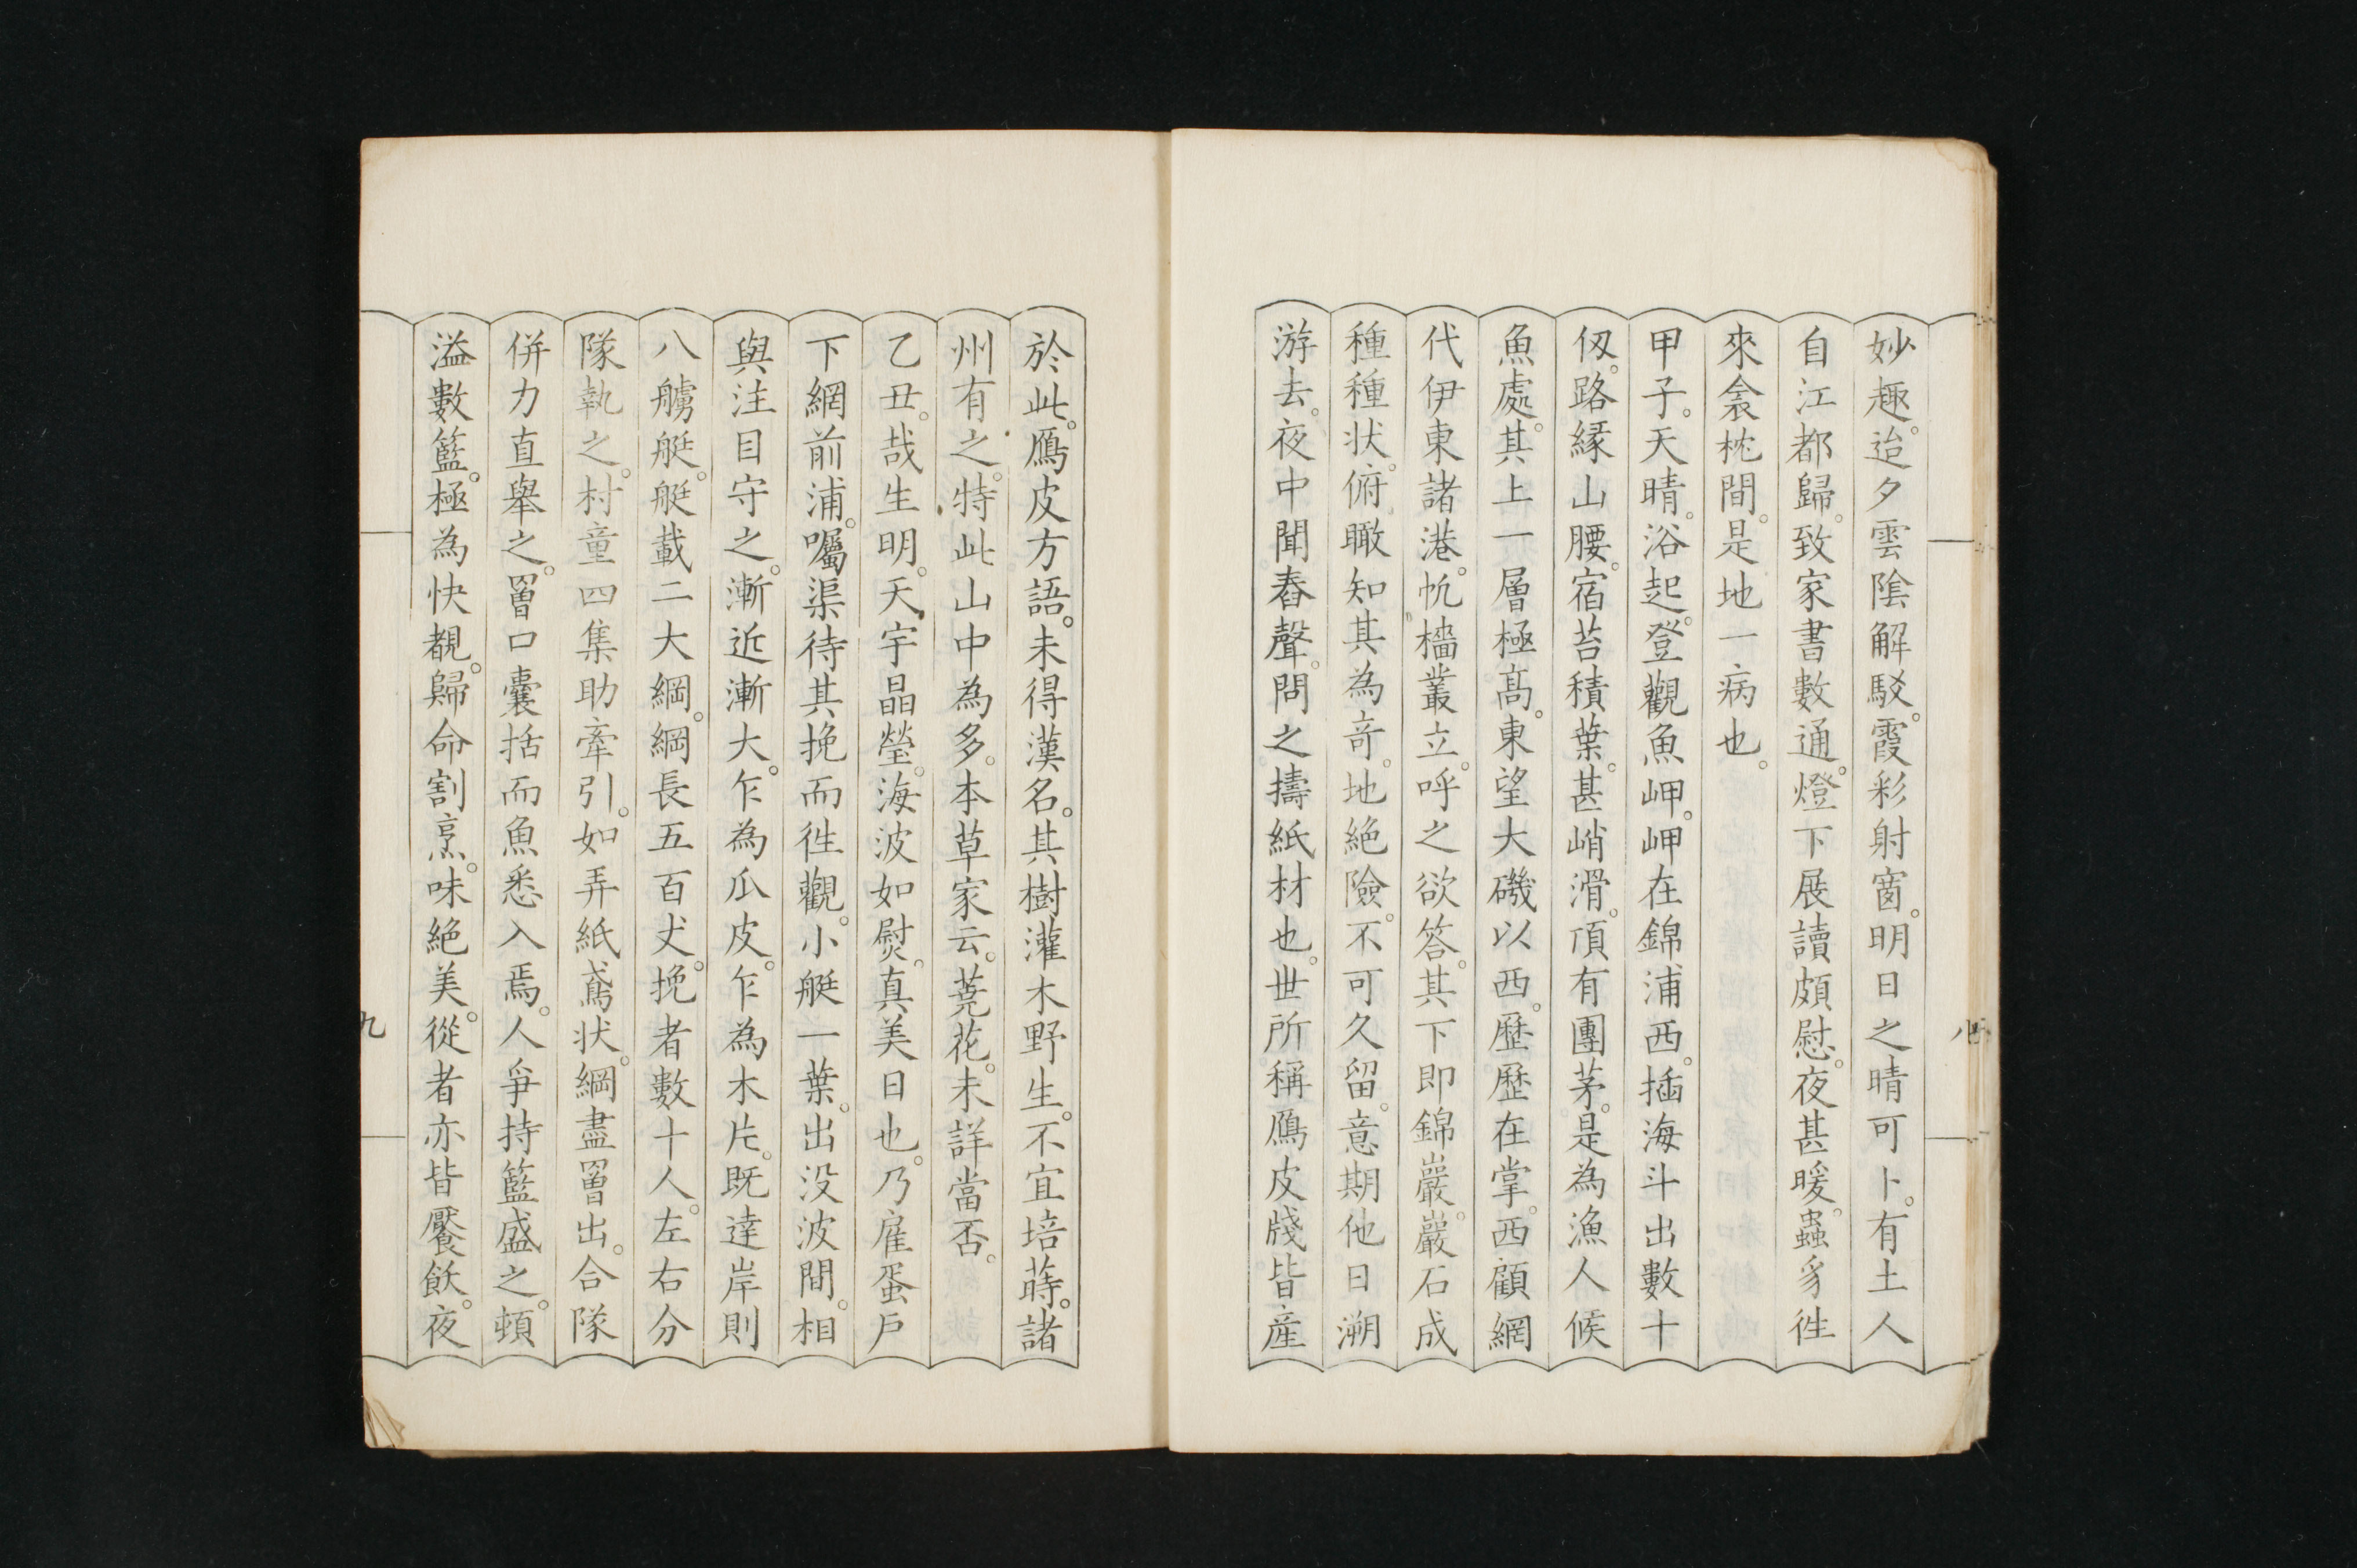 妙趣。迨夕雲陰解駁。霞彩射窗。明日之晴可卜。有土人
自江都歸。致家書數通。燈下展讀頗慰。夜甚暖。蟲豸徃
來衾枕間。是地一病也。
甲子。天晴。浴起。登觀魚岬。岬在錦浦西。插海斗出數十
仭。路縁山腰。宿苔積葉。甚峭滑。頂有團茅。是為漁人候
魚處。其上一層極高。東望大磯以西。歷歷在掌。西顧網
代伊東諸港。帆檣叢立。呼之欲答。其下即錦巖。巖石成
種種状。俯瞰知其為奇。地絶險。不可久留。意期他日溯
游去。夜中聞舂聲。問之擣紙材也。世所稱鴈皮牋皆産
於此。鴈皮方語。未得漢名。其樹灌木野生。不宜培蒔。諸
州有之。特此山中為多。本草家云。蕘花。未詳當否。
乙丑。哉生明。天宇晶瑩。海波如熨。真美日也。乃雇蛋戸
下網前浦。囑渠待其挽而徃觀。小艇一葉。出没波間。相
與注目守之。漸近漸大。乍為瓜皮。乍為木片。既達岸則
八艣艇。艇載二大綱。綱長五百丈。挽者數十人。左右分
隊執之。村童四集助牽引。如弄紙鳶状。綱盡罾出。合隊
併力直舉之。罾口囊括而魚悉入焉。人爭持籃盛之。頓
溢數籃。極為快覩。歸命割烹。味絶美。從者亦皆饜飫。夜
八
九